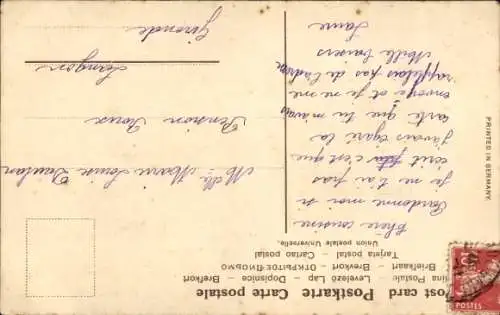 Post card Postkarte Carte postale
Postale – Levelező Lap – Dopisnice – Brefkort
Briefkaart – Brevkort – ОТКРЫТОЕ ПИСЬМО
Tarjeta postal – Cartao postal
Union postale Universelle.
Chère cousine
Pardonne moi si
je ne t'ai pas
écrit c'est que
j'avais égaré la
carte que tu m'avais
envoyé et je ne me
rappelais pas de l'adresse
Mille baisers
Laure
Melle Marie Louise
Pension
Langon
Gironde
PRINTED IN GERMANY.
POSTES